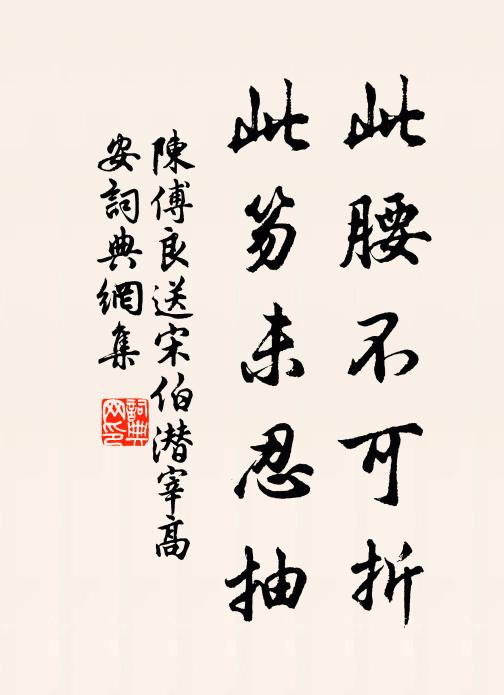 此腰不可折
此笏未忍抽
陳傅良送宋伯潜宰高
安詞典網集
詞典
网印